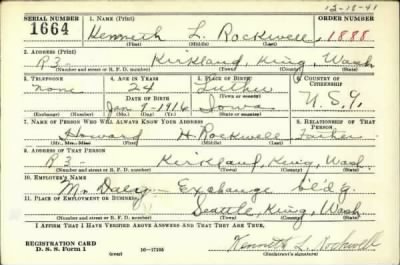 12-18-41
SERIAL NUMBER 1. NAME (Print) ORDER NUMBER
1664 Kenneth L. Rockwell 1888
(First) (Middle) (Last)
2. ADDRESS (Print)
R3 - Kirkland, King, Wash
(Number and street or R. F. D. number) (Town) (County) (State)
3. TELEPHONE 4. AGE IN YEARS 5. PLACE OF BIRTH 6. COUNTRY OF CITIZENSHIP
none 24 Luther
DATE OF BIRTH (Town or county)
Jan 9 - 1916 Iowa U.S.A.
(Exchange) (Number) (Mo.) (Day) (Yr.) (State or country)
7. NAME OF PERSON WHO WILL ALWAYS KNOW YOUR ADDRESS 8. RELATIONSHIP OF THAT PERSON
Howard H. Rockwell Father
(Mr., Mrs., Miss) (First) (Middle) (Last)
9. ADDRESS OF THAT PERSON
R3 - Kirkland, King, Wash.
(Number and street or R. F. D. number) (Town) (County) (State)
10. EMPLOYER'S NAME
Mr. Exchange bldg.
11. PLACE OF EMPLOYMENT OR BUSINESS
Seattle, King, Wash
(Number and street or R. F. D. number) (Town) (County) (State)
I AFFIRM THAT I HAVE VERIFIED ABOVE ANSWERS AND THAT THEY ARE TRUE.
REGISTRATION CARD
D. S. S. Form 1 (over) 16-17105 Kenneth L. Rockwell
(Registrant's signature)